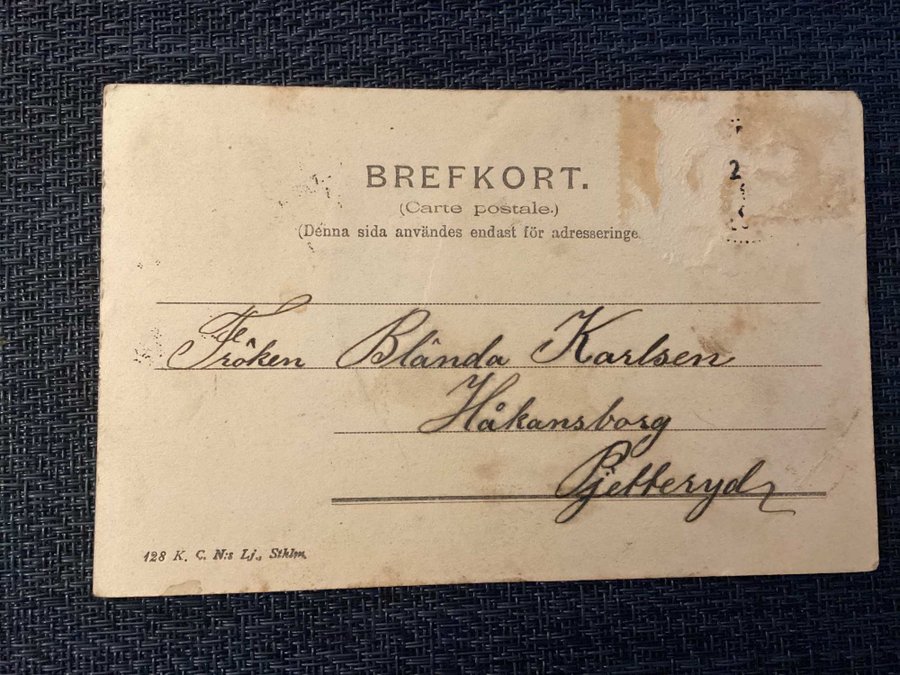 BREFKORT.
(Carte postale.)
(Denna sida användes endast för adresseringe
Fröken Blända Karlsen
Håkansborg
Pjetteryd
128 K. C. N:s Lj., Sthlm.